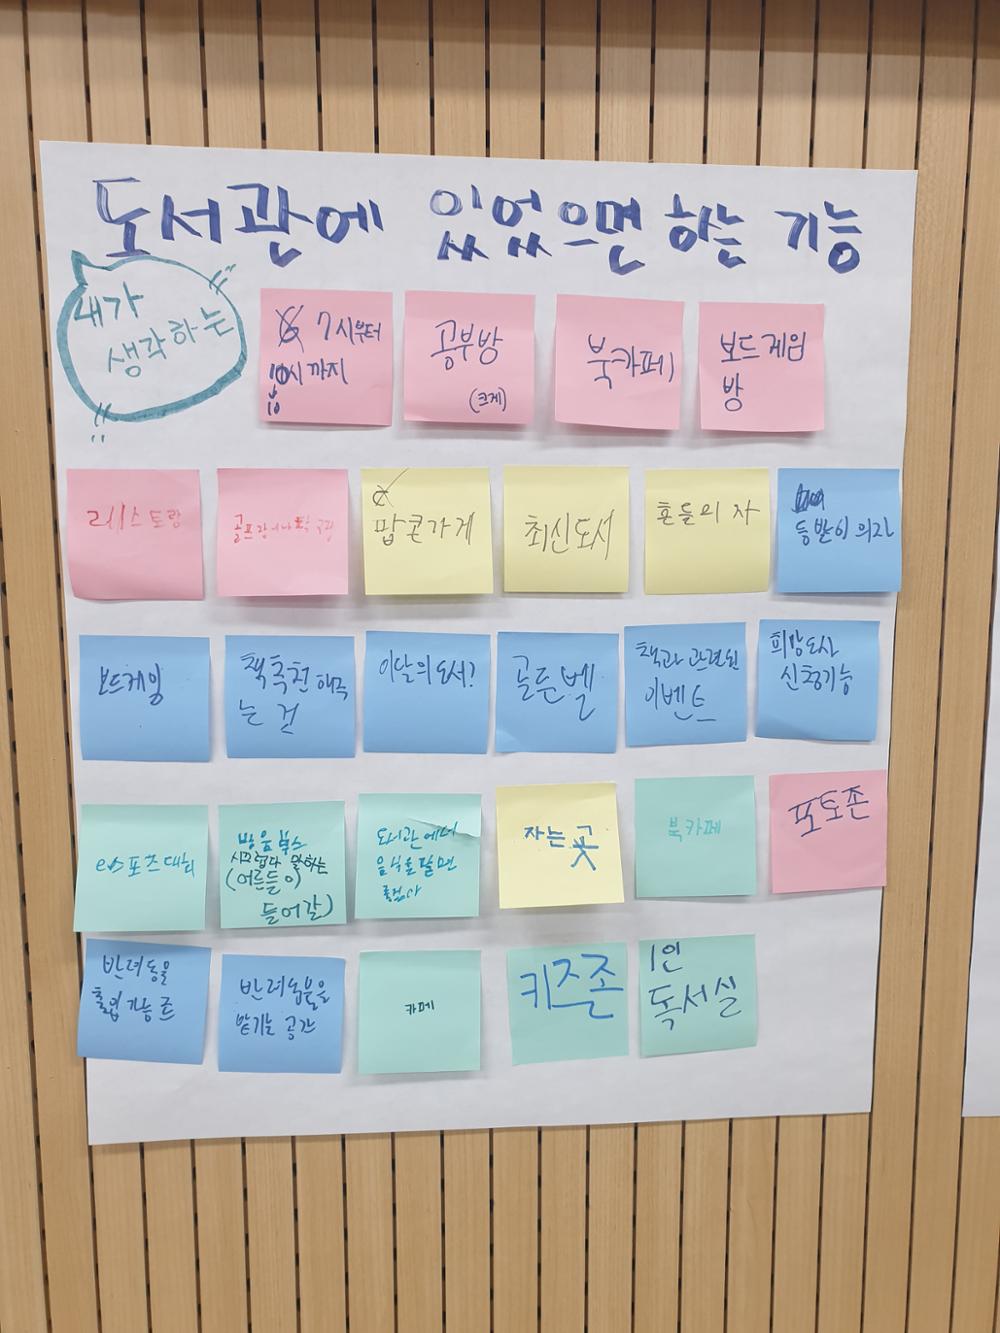 도서관에 있었으면 하는 기능
내가
생각하는
7시부터
10시까지
공부방
(크게)
북카페
보드게임
방
레스토랑
골프장이나
팝콘가게
최신도서
흔들의자
등받이 의자
보드게임
책 추천 해주
는 것
이달의 도서?
골든벨
책과 관련된
이벤트
희망도서
신청기능
e스포츠대회
방음부스
시끄럽다 말하는
(어른들이
들어갈)
도서관에서
음식을 팔면
좋겠다
자는 곳
북카페
포토존
반려동물
출입가능 존
반려동물을
맡기는 공간
카페
키즈존
1인
독서실